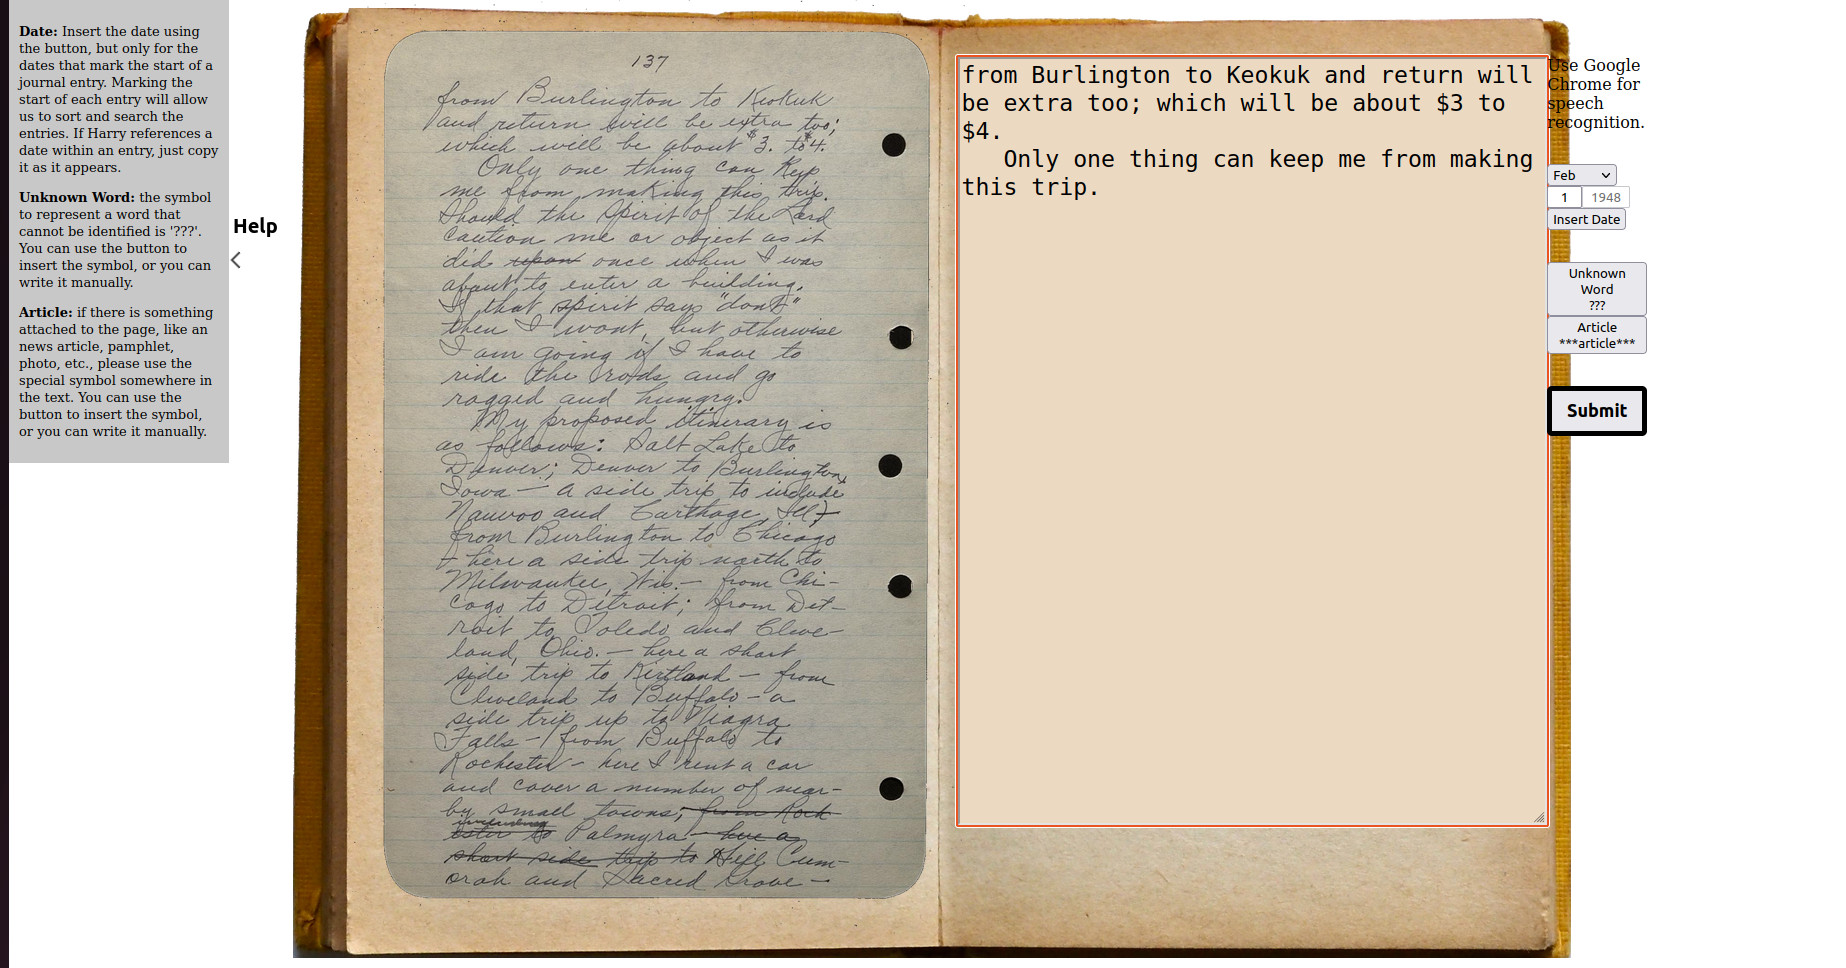 Date: Insert the date using
the button, but only for the
dates that mark the start of a
journal entry. Marking the
start of each entry will allow
us to sort and search the
entries. If Harry references a
date within an entry, just copy
it as it appears.
Unknown Word: the symbol
to represent a word that
cannot be identified is '???'.
You can use the button to
insert the symbol, or you can
write it manually.
Article: if there is something
attached to the page, like an
news article, pamphlet,
photo, etc., please use the
special symbol somewhere in
the text. You can use the
button to insert the symbol,
or you can write it manually.
Help
137
from Burlington to Keokuk
and return will be extra too;
which will be about $3. to $4.
Only one thing can keep
me from making this trip.
Should the Spirit of the Lord
caution me or object as it
did upon once when I was
about to enter a building.
If that spirit says "dont"
then I wont, but otherwise
I am going if I have to
ride the rods and go
ragged and hungry.
My proposed itinerary is
as follows: Salt Lake to
Denver; Denver to Burlington,
Iowa — a side trip to include
Nauvoo and Carthage, Ill;—
from Burlington to Chicago
— here a side trip north to
Milwaukee, Wis. — from Chi-
cago to Detroit; from Det-
roit to Toledo and Cleve-
land, Ohio. — here a short
side trip to Kirtland — from
Cleveland to Buffalo — a
side trip up to Niagra
Falls — from Buffalo to
Rochester — here I rent a car
and cover a number of near-
by small towns; from Roch
including
ester to Palmyra — here a
short side trip to Hill Cum-
orah and Sacred Grove —
from Burlington to Keokuk and return will
be extra too; which will be about $3 to
$4.
Only one thing can keep me from making
this trip.
Use Google
Chrome for
speech
recognition.
Feb
1 1948
Insert Date
Unknown
Word
???
Article
***article***
Submit